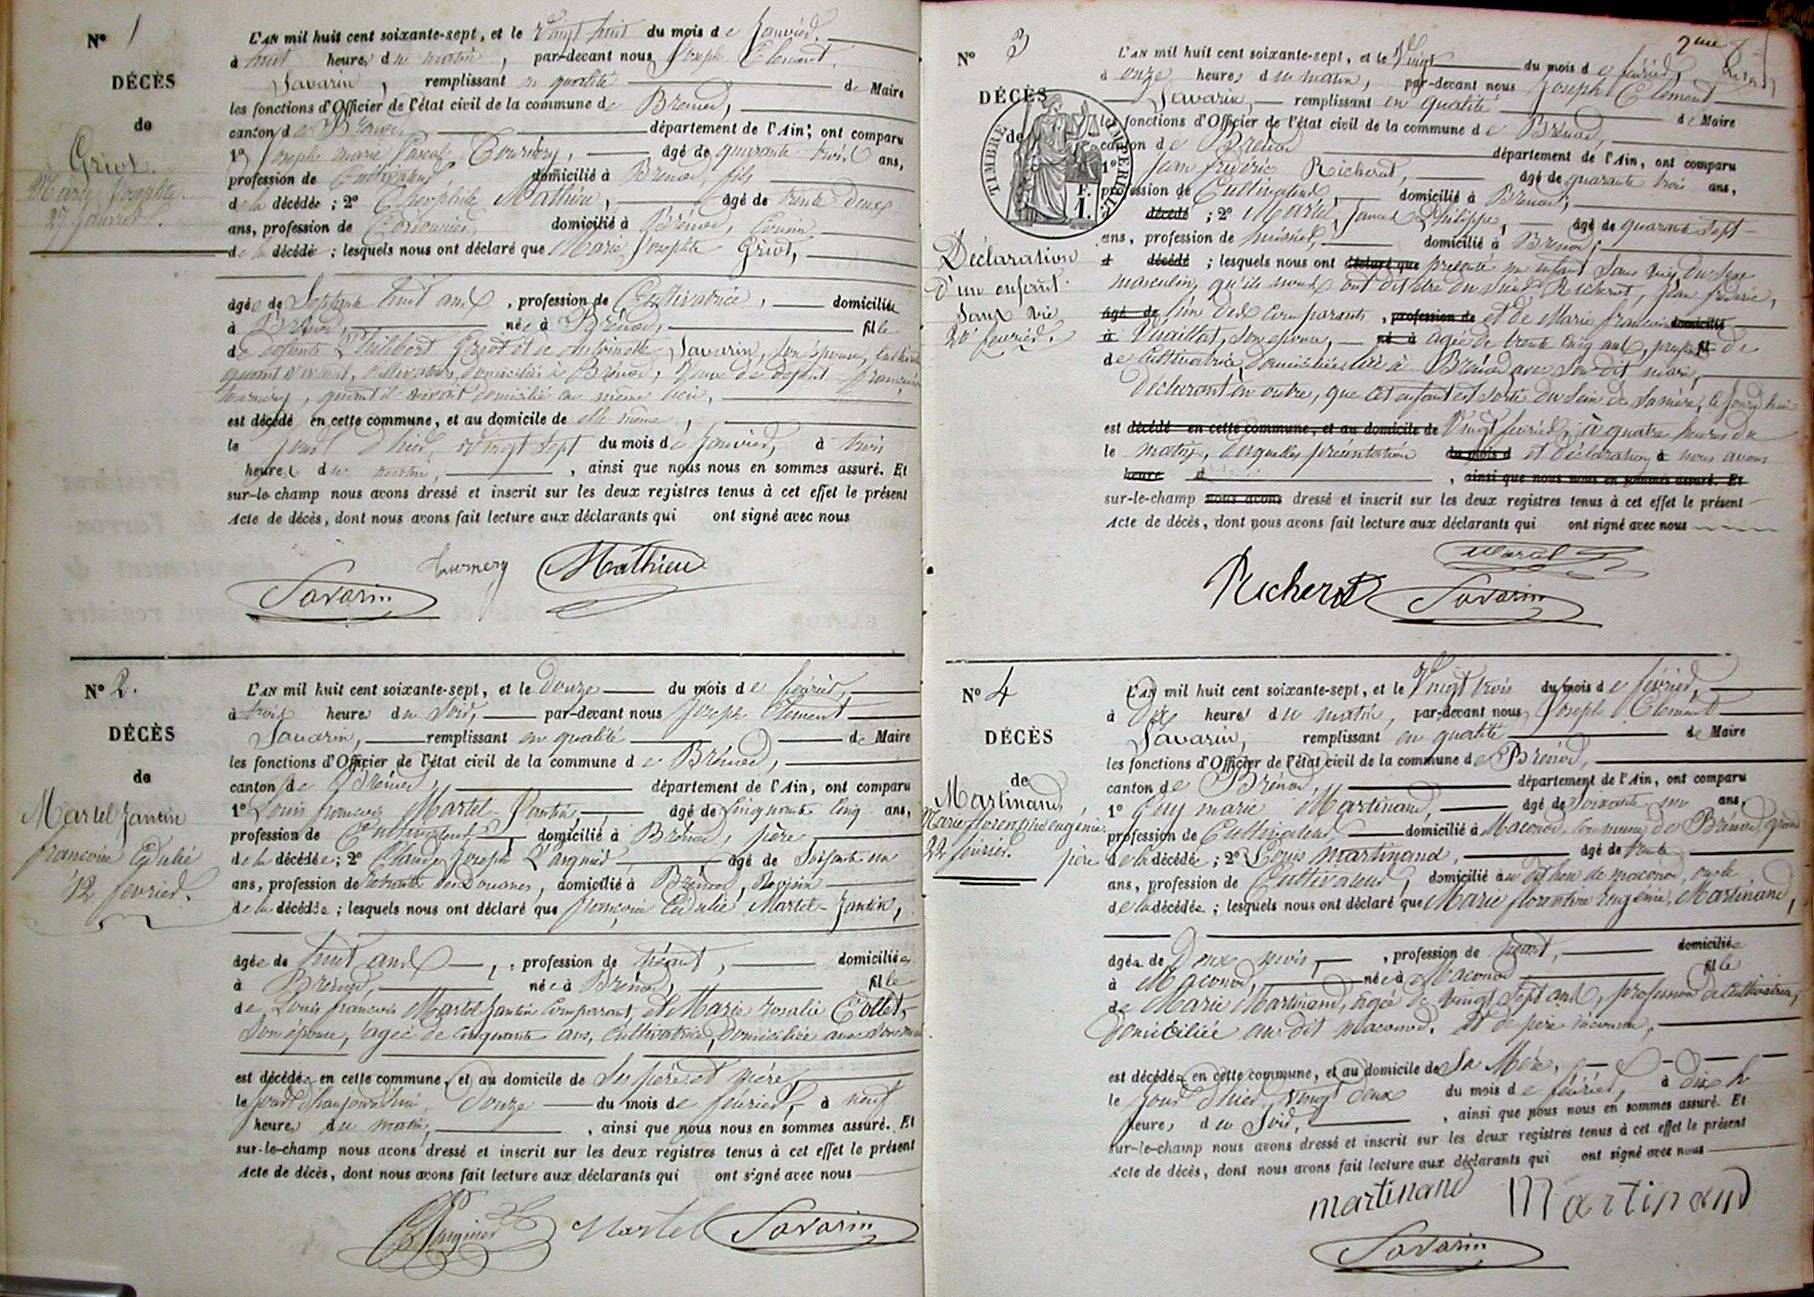 N° 1
DÉCÈS
de
Griot
Marie Josephte
27 Janvier.
L'AN mil huit cent soixante-sept, et le Vingt huit du mois de Janvier,
à huit heures du matin, par-devant nous Joseph Clement
Savarin, remplissant en qualité de Maire
les fonctions d'Officier de l'état civil de la commune de Brénod,
canton de Brénod département de l'Ain; ont comparu
1° Joseph Marie Tournery, âgé de quarante trois ans,
profession de Cultivateur domicilié à Brénod, fils
de la décédée; 2° Théophile Mathieu, âgé de trente deux
ans, profession de Cordonnier, domicilié à Brénod, Cousin
de la décédée; lesquels nous ont déclaré que Marie Josephte Griot,
âgée de Septante huit ans, profession de Cultivatrice, domiciliée
à Brénod, née à Brénod, fille
de defunts Philibert Griot et de Antoinette Savarin, son épouse,
quand vivant, cultivateurs, domiciliés à Brénod, veuve de défunt françois
tournery, quand il vivait domicilié au même lieu,
est décédé en cette commune, et au domicile de elle même,
le jour d'hier, vingt sept du mois de Janvier, à trois
heures du matin, ainsi que nous nous en sommes assuré. Et
sur-le-champ nous avons dressé et inscrit sur les deux registres tenus à cet effet le présent
Acte de décès, dont nous avons fait lecture aux déclarants qui ont signé avec nous
Tournery Mathieu
Savarin
N° 2.
DÉCÈS
de
Martel Jantin
françoise Eulalie
12 fevrier.
L'AN mil huit cent soixante-sept, et le douze du mois de février,
à trois heures du Soir, par-devant nous Joseph Clement
Savarin, remplissant en qualité de Maire
les fonctions d'Officier de l'état civil de la commune de Brénod,
canton de Brénod, département de l'Ain, ont comparu
1° Louis francois Martel Jantin, âgé de Cinquante Cinq ans,
profession de Cultivateur, domicilié à Brénod, père
de la décédée; 2° Claude Joseph L'argnier, âgé de Soixante un
ans, profession de retraité des Douanes, domicilié à Brénod, Voisin
de la décédée; lesquels nous ont déclaré que françoise Eulalie Martel-Jantin,
âgée de huit ans, profession de néant, domiciliée
à Brénod, née à Brénod, fille
de Louis francois Martel Jantin Comparant, et Marie rosalie Collet,
Son épouse, agée de Cinquante ans, Cultivatrice, Domiciliée avec Son mari
est décédée en cette commune, et au domicile de Ses père et mère,
le jour d'aujourd'hui, Douze du mois de février, à neuf
heures du matin, ainsi que nous nous en sommes assuré. Et
sur-le-champ nous avons dressé et inscrit sur les deux registres tenus à cet effet le présent
Acte de décès, dont nous avons fait lecture aux déclarants qui ont signé avec nous
Martel Savarin
N° 3
DÉCÈS
de
TIMBRE IMPÉRIAL
Déclaration
d'un enfant
Sans vie
20 fevrier.
L'AN mil huit cent soixante-sept, et le Vingt du mois de février,
à onze heures du matin, par-devant nous Joseph Clement
Savarin, remplissant en qualité de Maire
les fonctions d'Officier de l'état civil de la commune de Brénod,
canton de Brénod département de l'Ain, ont comparu
1° Jean frédéric Richerot, âgé de quarante trois ans,
profession de Cultivateur, domicilié à Brénod,
décédé; 2° Martel, James Philippe, âgé de quarante sept
ans, profession de huissier, domicilié à Brénod,
d décédé; lesquels nous ont déclaré que présenté un enfant Sans vie, du Sexe
masculin, qu'ils nous ont dit être du Sieur Richerot, Jean frédéric,
âgé de l'un des Comparants, profession de et de Marie françoise domicilié
à Vuaillat, Son épouse, né à agée de trente Cinq ans, profession fil de
de Cultivatrice, domiciliée à Brénod avec Son dit mari,
Déclarant en outre, que cet enfant est Sorti du Sein de Sa mère, le Jourd'huis
est décédé en cette commune, et au domicile de Vingt fevrier, à quatre heures du
le matin, Lesquelles présentation du mois d et déclaration à nous avons
heure d , ainsi que nous nous en sommes assuré. Et
sur-le-champ nous avons dressé et inscrit sur les deux registres tenus à cet effet le présent
Acte de décès, dont nous avons fait lecture aux déclarants qui ont signé avec nous
Martel
Richerot Savarin
N° 4
DÉCÈS
de
Martinand,
Marie florentine eugénie
22 février.
L'AN mil huit cent soixante-sept, et le Vingt trois du mois de février,
à Dix heures du matin, par-devant nous Joseph Clément
Savarin, remplissant en qualité de Maire
les fonctions d'Officier de l'état civil de la commune de Brénod,
canton de Brénod, département de l'Ain, ont comparu
1° Guy marie Martinand, âgé de Soixante un ans,
profession de Cultivateur domicilié à Maconod, Commune de Brénod, grand
père de la décédée; 2° Louis Martinand, âgé de trente
ans, profession de Cultivateur, domicilié au dit lieu de maconod, oncle
de la décédée; lesquels nous ont déclaré que Marie florentine Eugénie Martinand,
âgée de Deux mois, profession de néant, domiciliée
à Maconod, née à Maconod fille
de Marie Martinand, agée de vingt Sept ans, profession de Cultivatrice,
domiciliée au dit maconod, et de père inconnu,
est décédée en cette commune, et au domicile de Sa Mère,
le jour d'hier, vingt deux du mois de février, à dix h
heures du Soir, ainsi que nous nous en sommes assuré. Et
sur-le-champ nous avons dressé et inscrit sur les deux registres tenus à cet effet le présent
Acte de décès, dont nous avons fait lecture aux déclarants qui ont signé avec nous
martinand Martinand
Savarin